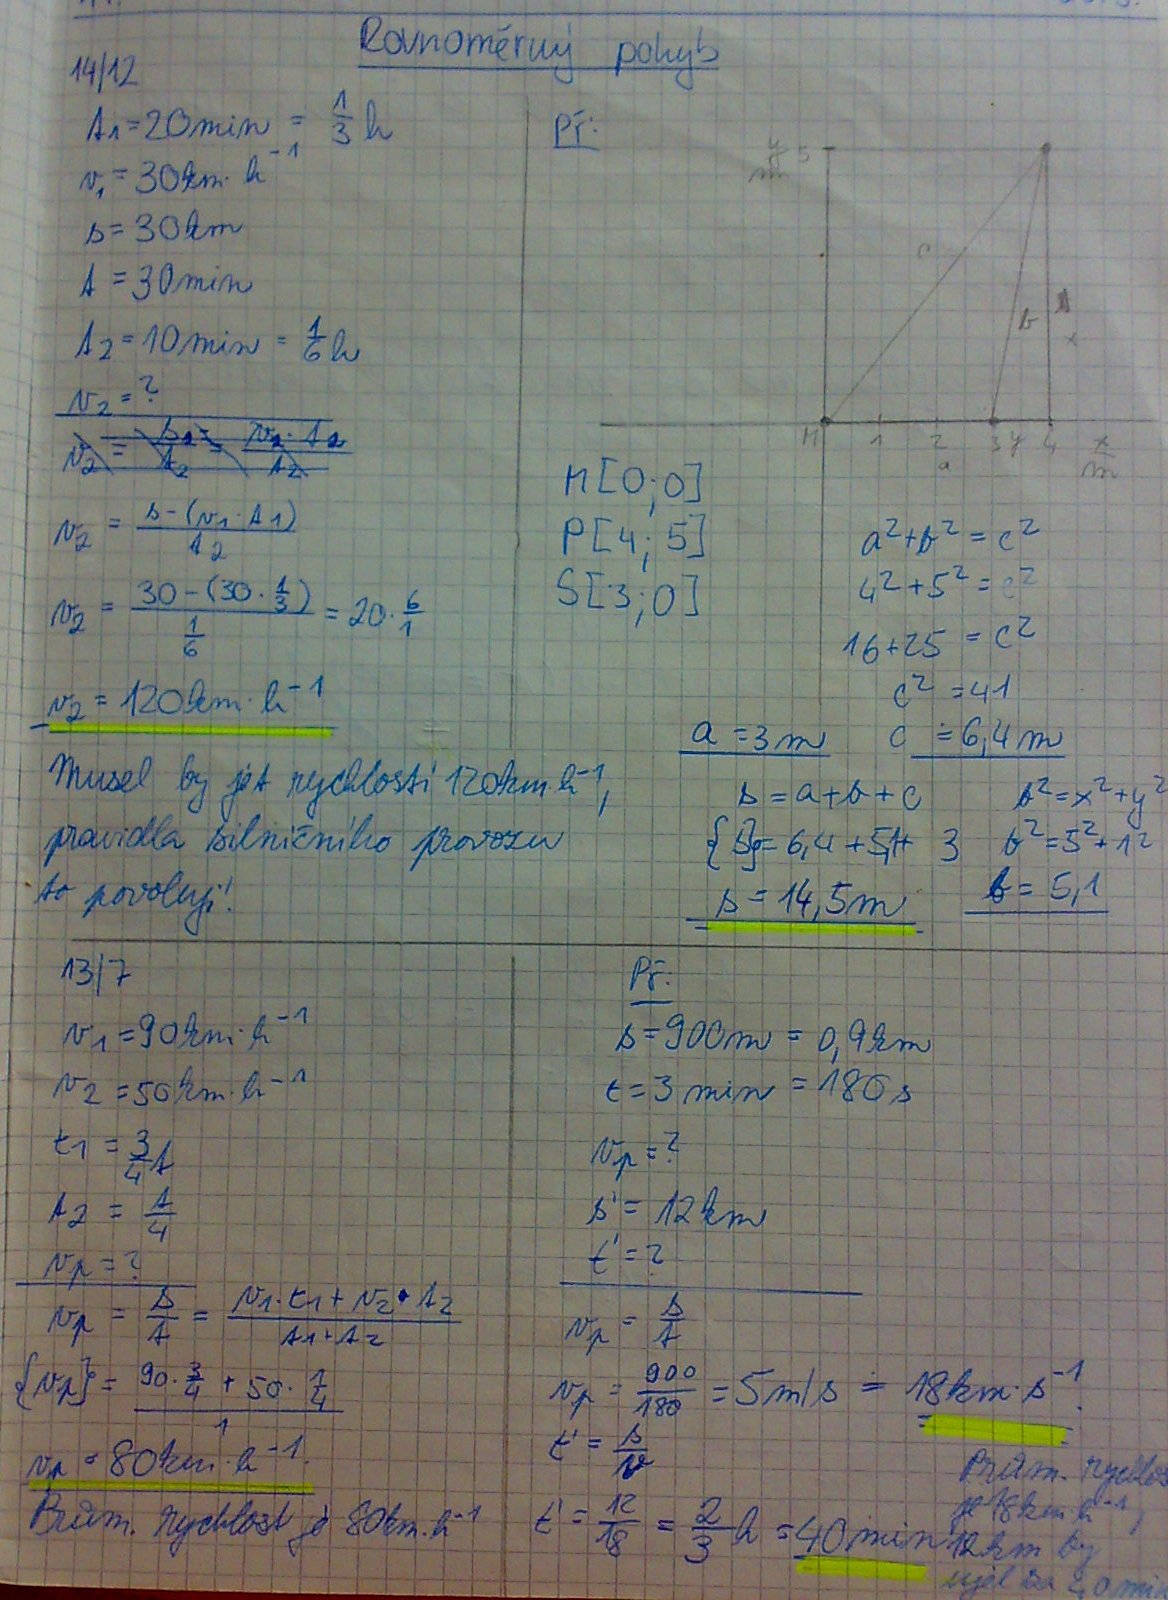 Rovnoměrný pohyb
14/12
t1 = 20min = 1/3 h
v1 = 30km·h⁻¹
s = 30km
t = 30min
t2 = 10min = 1/6 h
v2 = ?
v2 = s2/t2 = v2·t2/t2
v2 = s-(v1·t1)/t2
v2 = 30-(30·1/3)/(1/6) = 20·6/1
v2 = 120km·h⁻¹
Musel by jet rychlostí 120km·h⁻¹,
pravidla silničního provozu
to povolují!
Př:
y/m 5
c
b
s
x
M 1 2 3 y 4 x/m
a
M[0;0]
P[4;5]
S[3;0]
a²+b² = c²
4²+5² = c²
16+25 = c²
c² = 41
a = 3m c = 6,4m
s = a+b+c b² = x²+y²
{s} = 6,4+5,1+ 3 b² = 5²+1²
s = 14,5m b = 5,1
13/7
v1 = 90km·h⁻¹
v2 = 50km·h⁻¹
t1 = 3/4 t
t2 = t/4
vp = ?
vp = s/t = v1·t1+v2·t2/t1+t2
{vp} = 90·3/4 + 50·1/4 / 1
vp = 80km·h⁻¹
Prům. rychlost je 80km·h⁻¹
Př:
s = 900m = 0,9km
t = 3 min = 180s
vp = ?
s' = 12km
t' = ?
vp = s/t
vp = 900/180 = 5m/s = 18km·s⁻¹
t' = s/v
t' = 12/18 = 2/3 h = 40min
Prům. rychlos
je 18km·h⁻¹,
12km by
ujel za 40min